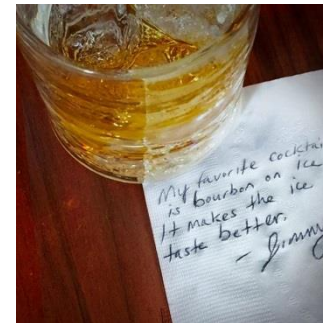 My favorite cocktail
is bourbon on ice
It makes the ice
taste better.
- Jimmy